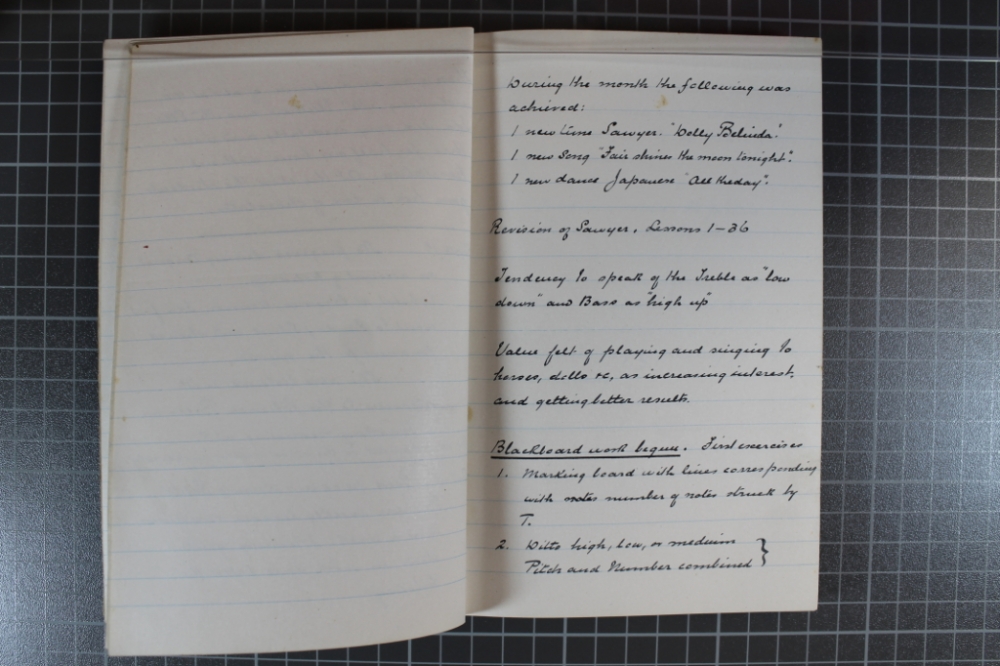 During the month the following was
achieved:
1 new tune Sawyer. "Dolly Belinda".
1 new Song "Fair shines the moon tonight".
1 new dance Japanese "All the day".
Revision of Sawyer. Lessons 1-36
Tendency to speak of the Treble as "low
down" and Bass as "high up"
Value felt of playing and singing to
horses, dolls &c, as increasing interest,
and getting better results.
Blackboard work begun. First exercises
1. Marking board with lines corresponding
with notes number of notes struck by
T.
2. Ditto high, low, or medium
Pitch and Number combined }